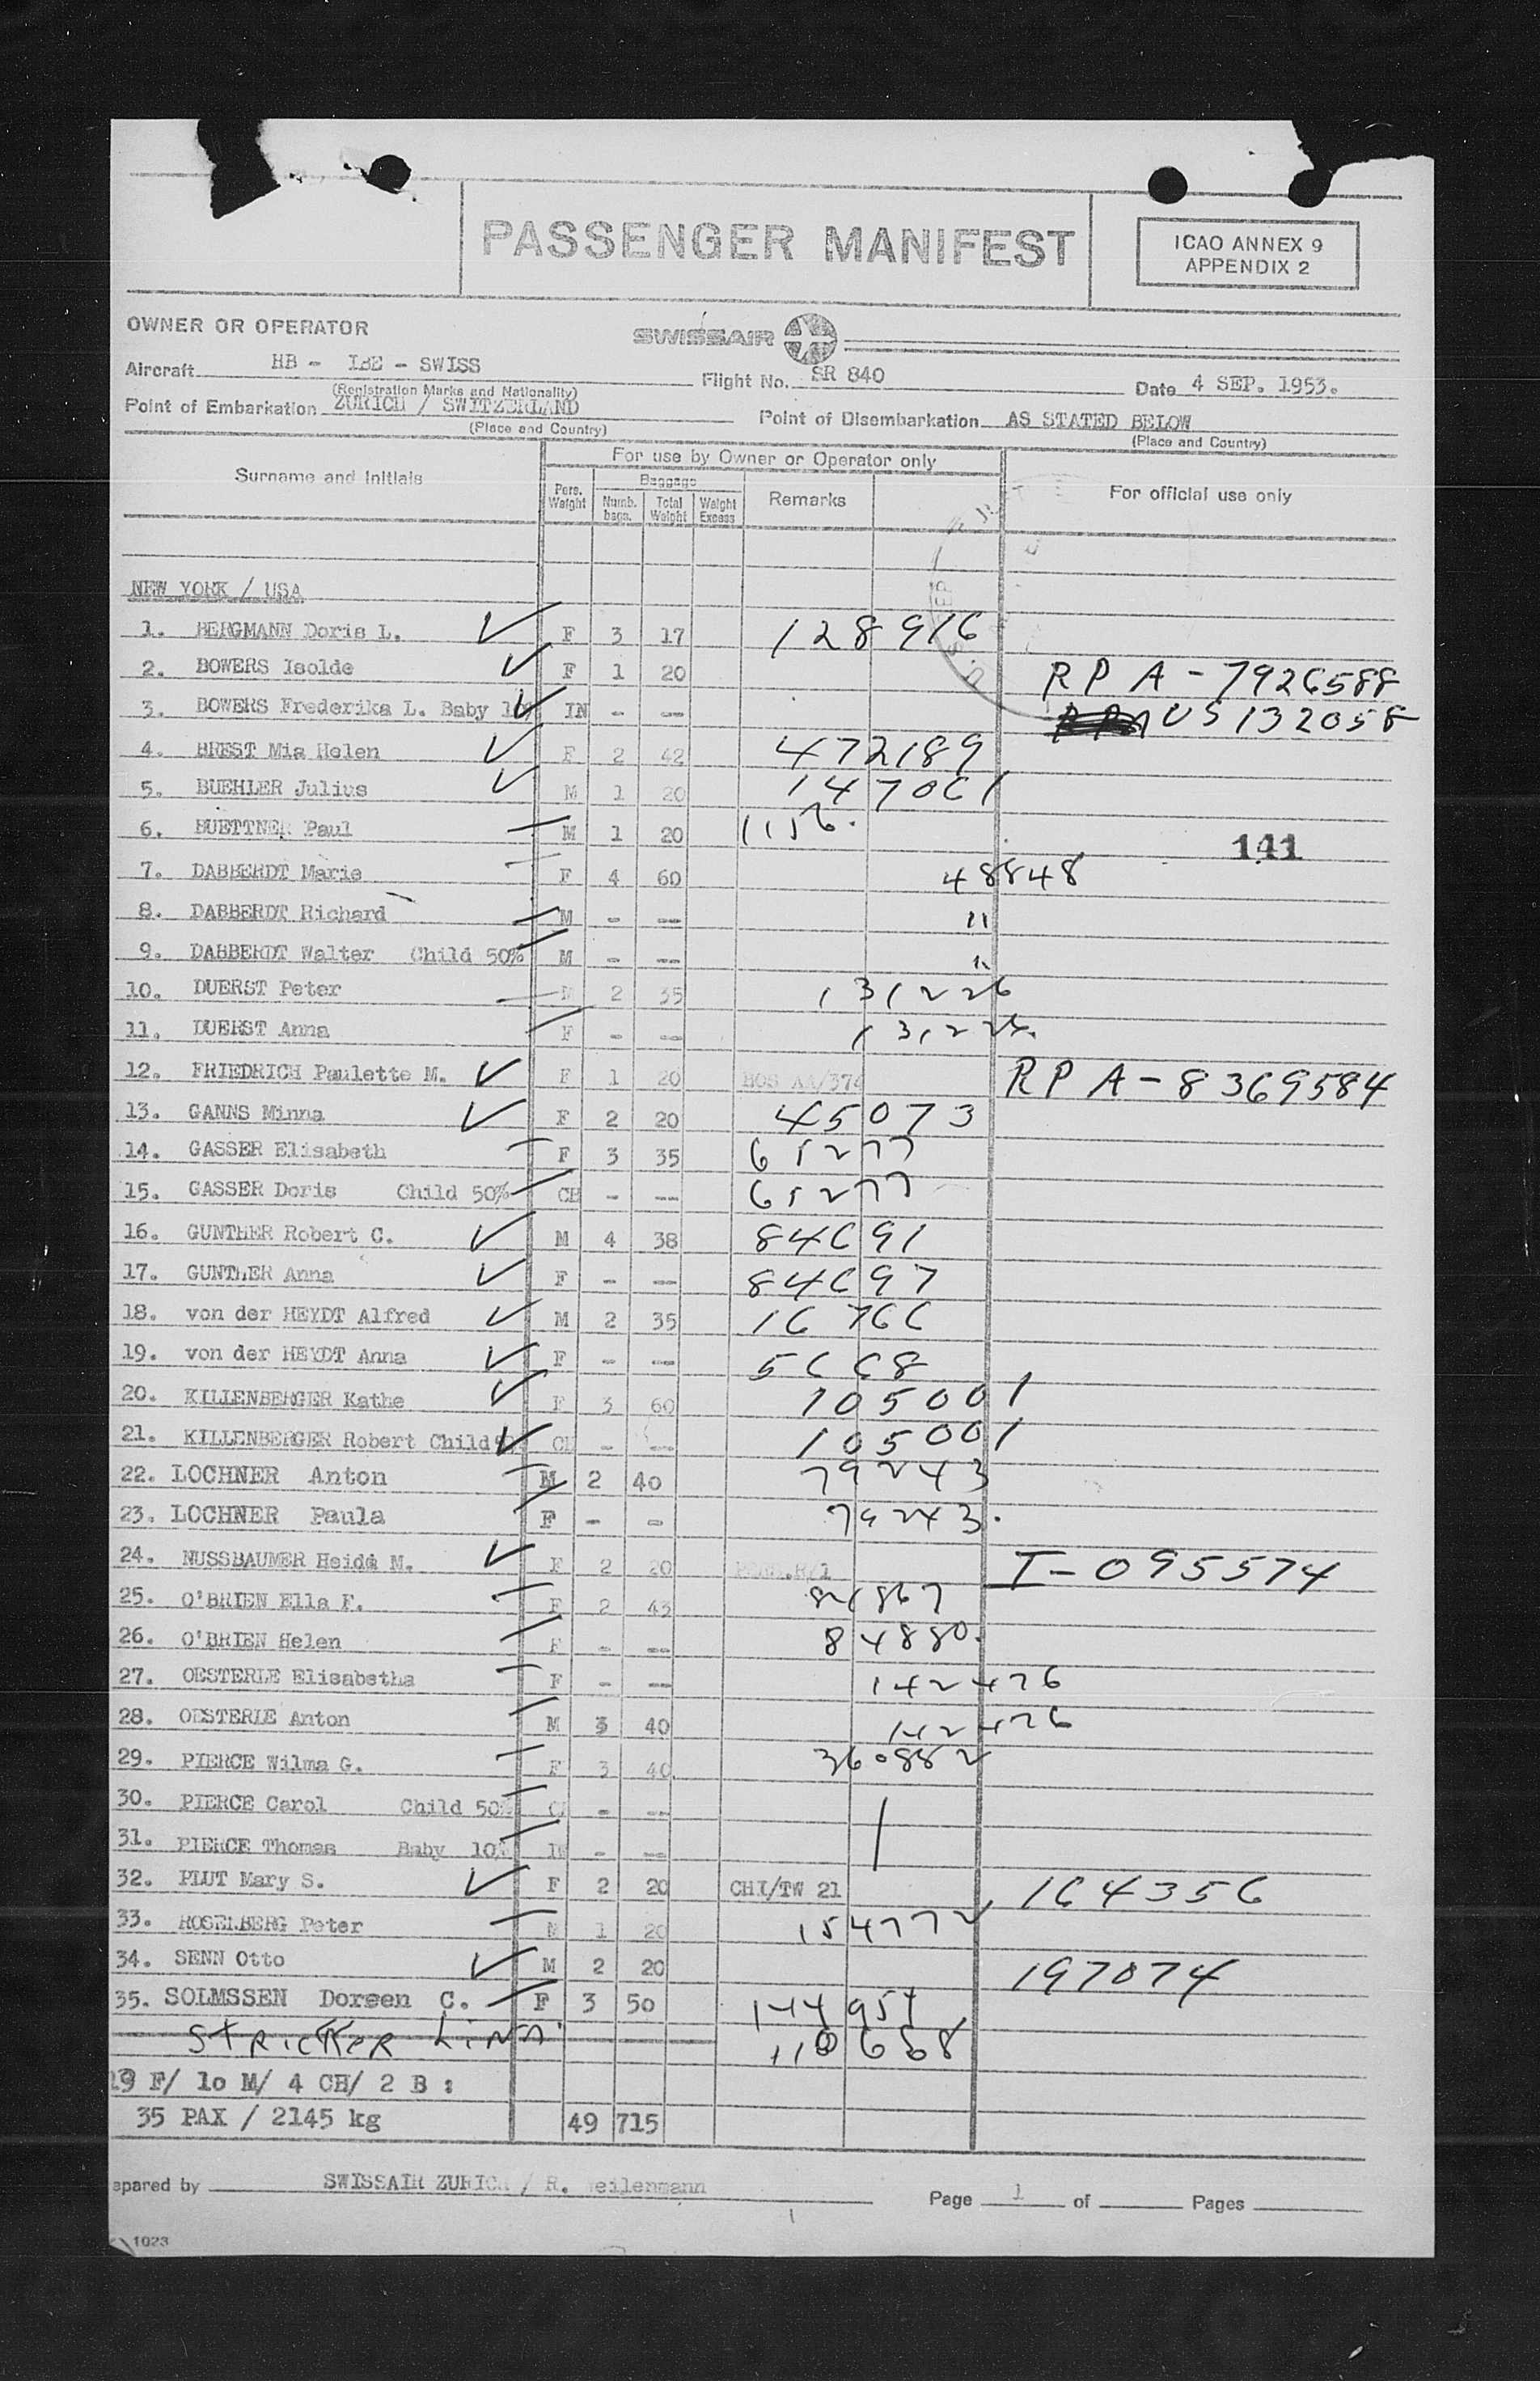 PASSENGER MANIFEST
ICAO ANNEX 9
APPENDIX 2
OWNER OR OPERATOR
SWISSAIR
Aircraft HB - IBE - SWISS Flight No. SR 840 Date 4 SEP. 1953.
(Registration Marks and Nationality)
Point of Embarkation ZURICH / SWITZERLAND Point of Disembarkation AS STATED BELOW
(Place and Country) (Place and Country)
For use by Owner or Operator only
Surname and Initials Pers. Weight Baggage Numb. bags. Total Weight Weight Excess Remarks For official use only
NEW YORK / USA
1. BERGMANN Doris L. F 3 17 128916
2. BOWERS Isolde F 1 20 RP A-7926588
3. BOWERS Frederika L. Baby IN - -- US 132058
4. BREST Mia Helen F 2 42 472189
5. BUEHLER Julius M 1 20 147061
6. BUETTNER Paul M 1 20 1156.
141
7. DABBERDT Marie F 4 60 48848
8. DABBERDT Richard M - -- "
9. DABBERDT Walter Child 50% M - -- "
10. DUERST Peter M 2 35 131226
11. DUERST Anna F - --
12. FRIEDRICH Paulette M. F 1 20 BOS AA/374 RP A-8369584
13. GANNS Minna F 2 20 45073
14. GASSER Elisabeth F 3 35 65277
15. GASSER Doris Child 50% CH - -- 65277
16. GUNTHER Robert C. M 4 38 84691
17. GUNTHER Anna F - -- 84697
18. von der HEYDT Alfred M 2 35 16766
19. von der HEYDT Anna F - -- 5668
20. KILLENBERGER Kathe F 3 60 105001
21. KILLENBERGER Robert Child CH - -- 105001
22. LOCHNER Anton M 2 40 79243
23. LOCHNER Paula F - - 79243.
24. NUSSBAUMER Heidi M. F 2 20 I-095574
25. O'BRIEN Ella F. F 2 43 84867
26. O'BRIEN Helen F - -- 84880.
27. OESTERLE Elisabetha F - -- 142476
28. OESTERLE Anton M 3 40 142476
29. PIERCE Wilma G. F 3 40 360882
30. PIERCE Carol Child 50% CH - --
31. PIERCE Thomas Baby 10% IN - --
32. PLUT Mary S. F 2 20 CHI/TW 21 164356
33. ROSELBERG Peter M 1 20 154772
34. SENN Otto M 2 20 197074
35. SOLMSSEN Doreen C. F 3 50 144954
STRICKER Lina
19 F/ 10 M/ 4 CH/ 2 B :
35 PAX / 2145 kg 49 715
epared by SWISSAIR ZURICH / R. Weilenmann Page 1 of Pages
1023